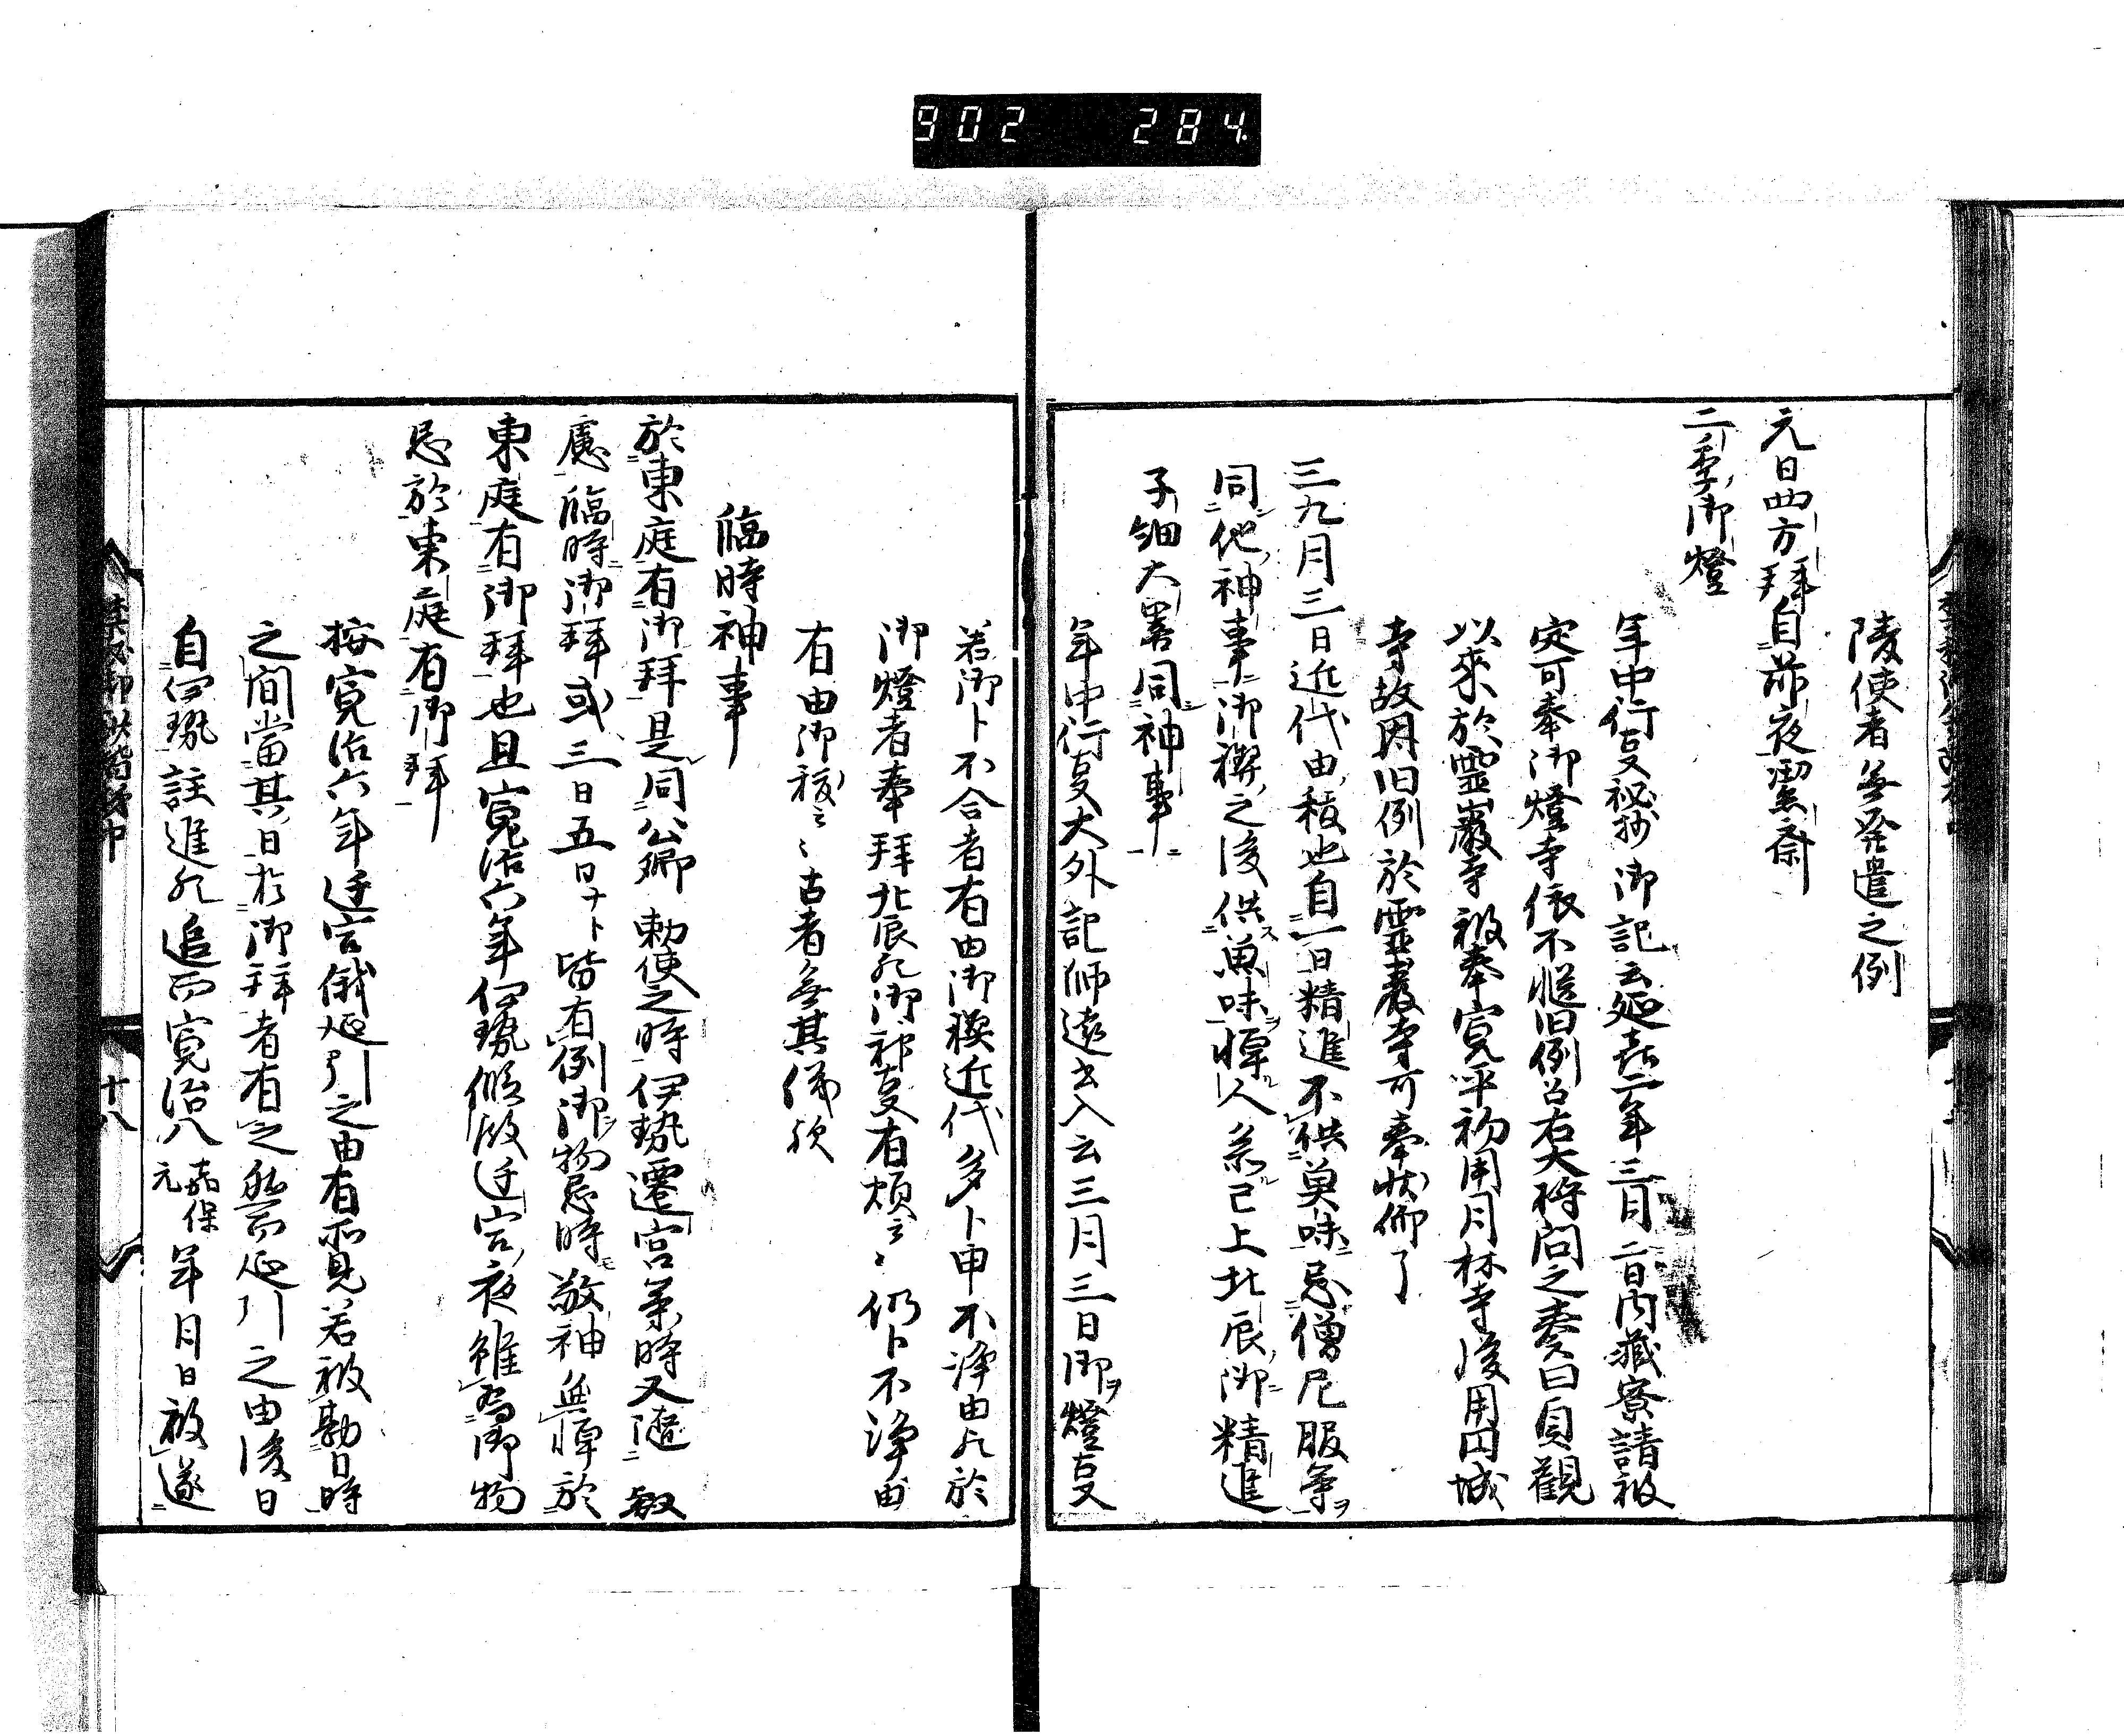 902 284
陵使者無発遣之例
元日四方拝自前夜潔斎
二季御燈
年中行事秘抄御記云延喜二年三月二日内蔵寮請被
定可奉御燈寺依不慥旧例召右大将問之奏曰貞観
以来於霊巌寺被奉寛平初用月林寺後用円城
寺故因旧例於霊巌寺可奉状仰了
三九月三日近代由祓也自一日精進不供魚味忌僧尼服気ヲ
同他神事御禊之後供ス魚味ヲ憚人参已上北辰御精進
子細大畧同神事
年中行事大外記師遠書入云三月三日御ヲ燈事
若御卜不合者有由御禊近代多卜申不浄由凡於
御燈者奉拝北辰凡御神事有煩云々仍卜不浄由
有由御祓云々古者無其儀歟
臨時神事
於東庭有御拝是同公卿勅使之時伊勢遷宮等時又随叡
慮臨時御拝或三日五日ナト皆有例御物忌時モ敬神無憚於
東庭有御拝也且寛治六年伊勢仮殿迁宮夜雖為御物
忌於東庭有御拝
按寛治六年迁宮俄延引之由有所見若被勘日時
之間当其日於御拝者有之然而延引之由後日
自伊勢註進凡追而寛治八嘉保元年月日被遂
十八